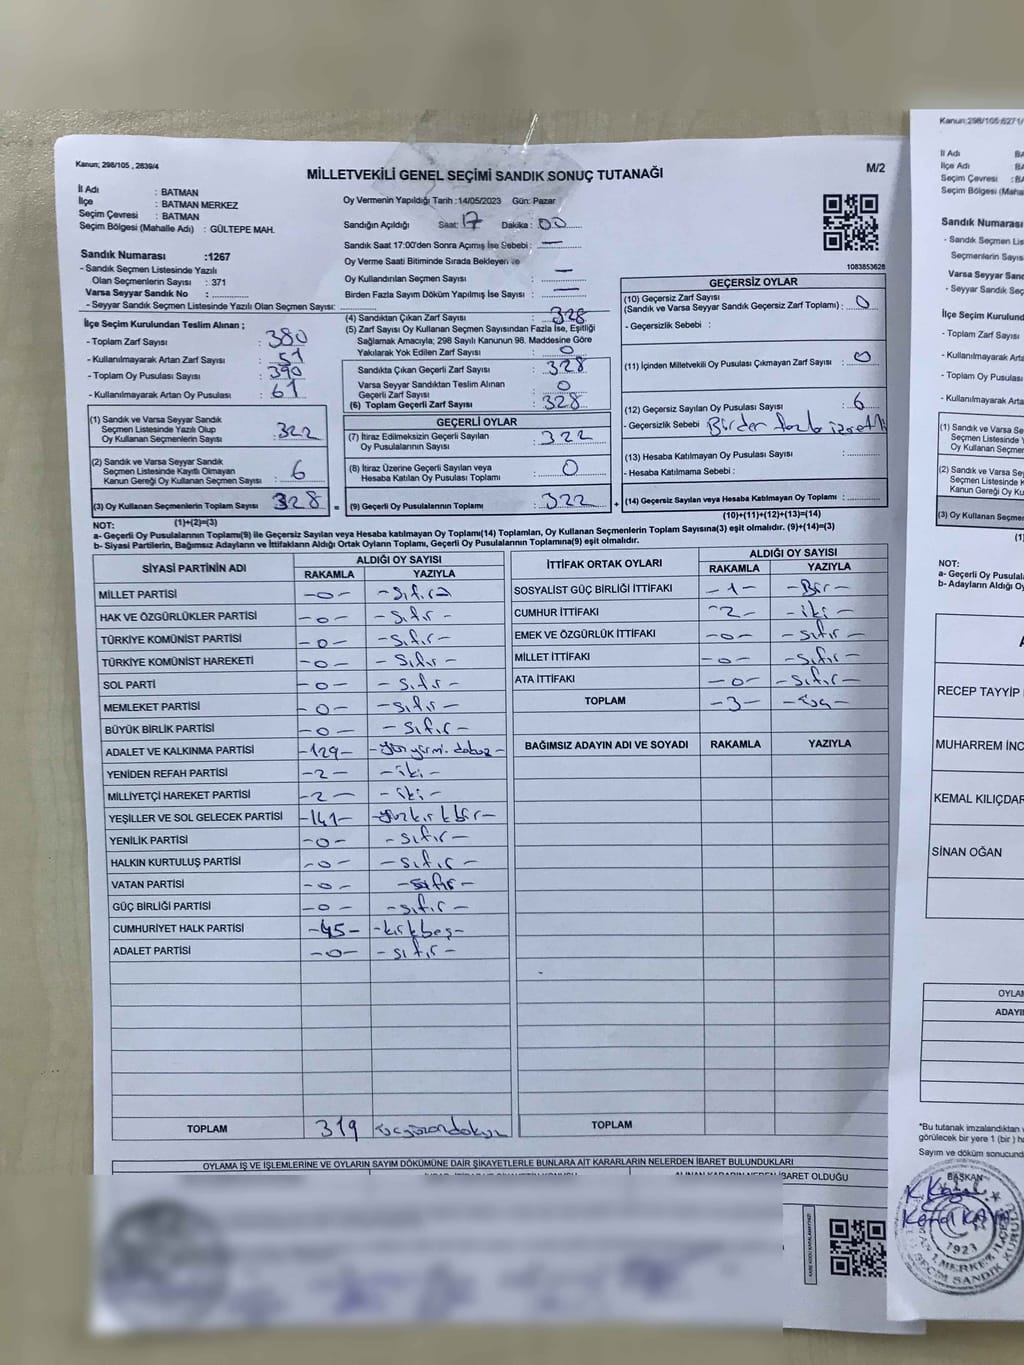 Kanun; 298/105 , 2839/4
MİLLETVEKİLİ GENEL SEÇİMİ SANDIK SONUÇ TUTANAĞI
M/2
İl Adı : BATMAN
İlçe : BATMAN MERKEZ
Seçim Çevresi : BATMAN
Seçim Bölgesi (Mahalle Adı) : GÜLTEPE MAH.
Sandık Numarası :1267
- Sandık Seçmen Listesinde Yazılı
Olan Seçmenlerin Sayısı : 371
Varsa Seyyar Sandık No :
- Seyyar Sandık Seçmen Listesinde Yazılı Olan Seçmen Sayısı:
Oy Vermenin Yapıldığı Tarih :14/05/2023 Gün: Pazar
Sandığın Açıldığı Saat: 17 Dakika : 00
Sandık Saat 17:00'den Sonra Açımış İse Sebebi : —
Oy Verme Saati Bitiminde Sırada Bekleyen ve
Oy Kullandırılan Seçmen Sayısı : —
Birden Fazla Sayım Döküm Yapılmış İse Sayısı : —
1083853628
İlçe Seçim Kurulundan Teslim Alınan ;
- Toplam Zarf Sayısı : 380
- Kullanılmayarak Artan Zarf Sayısı : 51
- Toplam Oy Pusulası Sayısı : 390
- Kullanılmayarak Artan Oy Pusulası : 61
(1) Sandık ve Varsa Seyyar Sandık
Seçmen Listesinde Yazılı Olup
Oy Kullanan Seçmenlerin Sayısı : 322
(2) Sandık ve Varsa Seyyar Sandık
Seçmen Listesinde Kayıtlı Olmayan
Kanun Gereği Oy Kullanan Seçmen Sayısı : 6
(3) Oy Kullanan Seçmenlerin Toplam Sayısı : 328
(1)+(2)=(3)
(4) Sandıktan Çıkan Zarf Sayısı : 328
(5) Zarf Sayısı Oy Kullanan Seçmen Sayısından Fazla İse, Eşitliği
Sağlamak Amacıyla; 298 Sayılı Kanunun 98. Maddesine Göre
Yakılarak Yok Edilen Zarf Sayısı : 0
Sandıkta Çıkan Geçerli Zarf Sayısı : 328
Varsa Seyyar Sandıktan Teslim Alınan
Geçerli Zarf Sayısı : 0
(6) Toplam Geçerli Zarf Sayısı : 328
GEÇERLİ OYLAR
(7) İtiraz Edilmeksizin Geçerli Sayılan
Oy Pusulasının Sayısı : 322
(8) İtiraz Üzerine Geçerli Sayılan veya
Hesaba Katılan Oy Pusulası Toplamı : 0
= (9) Geçerli Oy Pusulalarının Toplamı : 322
GEÇERSİZ OYLAR
(10) Geçersiz Zarf Sayısı
(Sandık ve Varsa Seyyar Sandık Geçersiz Zarf Toplamı) : 0
- Geçersizlik Sebebi :
(11) İçinden Milletvekili Oy Pusulası Çıkmayan Zarf Sayısı : 0
(12) Geçersiz Sayılan Oy Pusulası Sayısı : 6
- Geçersizlik Sebebi : Birden fazla
(13) Hesaba Katılmayan Oy Pusulası Sayısı :
- Hesaba Katılmama Sebebi :
+ (14) Geçersiz Sayılan veya Hesaba Katılmayan Oy Toplamı :
(10)+(11)+(12)+(13)=(14)
NOT:
a- Geçerli Oy Pusulalarının Toplamı(9) ile Geçersiz Sayılan veya Hesaba katılmayan Oy Toplamı(14) Toplamları, Oy Kullanan Seçmenlerin Toplam Sayısına(3) eşit olmalıdır. (9)+(14)=(3)
b- Siyasi Partilerin, Bağımsız Adayların ve İttifakların Aldığı Ortak Oyların Toplamı, Geçerli Oy Pusulalarının Toplamına(9) eşit olmalıdır.
SİYASİ PARTİNİN ADI ALDIĞI OY SAYISI
RAKAMLA YAZIYLA
MİLLET PARTİSİ -0- -sıfır-
HAK VE ÖZGÜRLÜKLER PARTİSİ -0- -sıfır-
TÜRKİYE KOMÜNİST PARTİSİ -0- -sıfır-
TÜRKİYE KOMÜNİST HAREKETİ -0- -sıfır-
SOL PARTİ -0- -sıfır-
MEMLEKET PARTİSİ -0- -sıfır-
BÜYÜK BİRLİK PARTİSİ -0- -sıfır-
ADALET VE KALKINMA PARTİSİ -129- -yüz yirmi dokuz-
YENİDEN REFAH PARTİSİ -2- -iki-
MİLLİYETÇİ HAREKET PARTİSİ -2- -iki-
YEŞİLLER VE SOL GELECEK PARTİSİ -141- -yüzkırkbir-
YENİLİK PARTİSİ -0- -sıfır-
HALKIN KURTULUŞ PARTİSİ -0- -sıfır-
VATAN PARTİSİ -0- -sıfır-
GÜÇ BİRLİĞİ PARTİSİ -0- -sıfır-
CUMHURİYET HALK PARTİSİ -45- -kırkbeş-
ADALET PARTİSİ -0- -sıfır-
TOPLAM 319 üçyüzondokuz
İTTİFAK ORTAK OYLARI ALDIĞI OY SAYISI
RAKAMLA YAZIYLA
SOSYALİST GÜÇ BİRLİĞİ İTTİFAKI -1- -Bir-
CUMHUR İTTİFAKI -2- -iki-
EMEK VE ÖZGÜRLÜK İTTİFAKI -0- -sıfır-
MİLLET İTTİFAKI -0- -sıfır-
ATA İTTİFAKI -0- -sıfır-
TOPLAM -3- -üç-
BAĞIMSIZ ADAYIN ADI VE SOYADI RAKAMLA YAZIYLA
TOPLAM
OYLAMA İŞ VE İŞLEMLERİNE VE OYLARIN SAYIM DÖKÜMÜNE DAİR ŞİKAYETLERLE BUNLARA AİT KARARLARIN NELERDEN İBARET BULUNDUKLARI
İBARET OLDUĞU
Kanun;298/105;6271/
İl Adı BA
İlçe Adı BA
Seçim Çevresi :BA
Seçim Bölgesi (Mah
Sandık Numarası
- Sandık Seçmen Lis
Seçmenlerin Sayıs
Varsa Seyyar Sandık
- Seyyar Sandık Seç
İlçe Seçim Kurulund
- Toplam Zarf Sayısı
- Kullanılmayarak Art
- Toplam Oy Pusulası
- Kullanılmayarak Art
(1) Sandık ve Varsa Se
Seçmen Listesinde Y
Oy Kullanan Seçmen
(2) Sandık ve Varsa Sey
Seçmen Listesinde K
Kanun Gereği Oy Ku
(3) Oy Kullanan Seçmen
(1)
NOT:
a- Geçerli Oy Pusulala
b- Adayların Aldığı Oy
A
RECEP TAYYİP
MUHARREM İNC
KEMAL KILIÇDAR
SİNAN OĞAN
OYLAM
ADAYIN
*Bu tutanak imzalandıktan
görülecek bir yere 1 (bir ) ha
Sayım ve döküm sonucund
BAŞKAN
1923